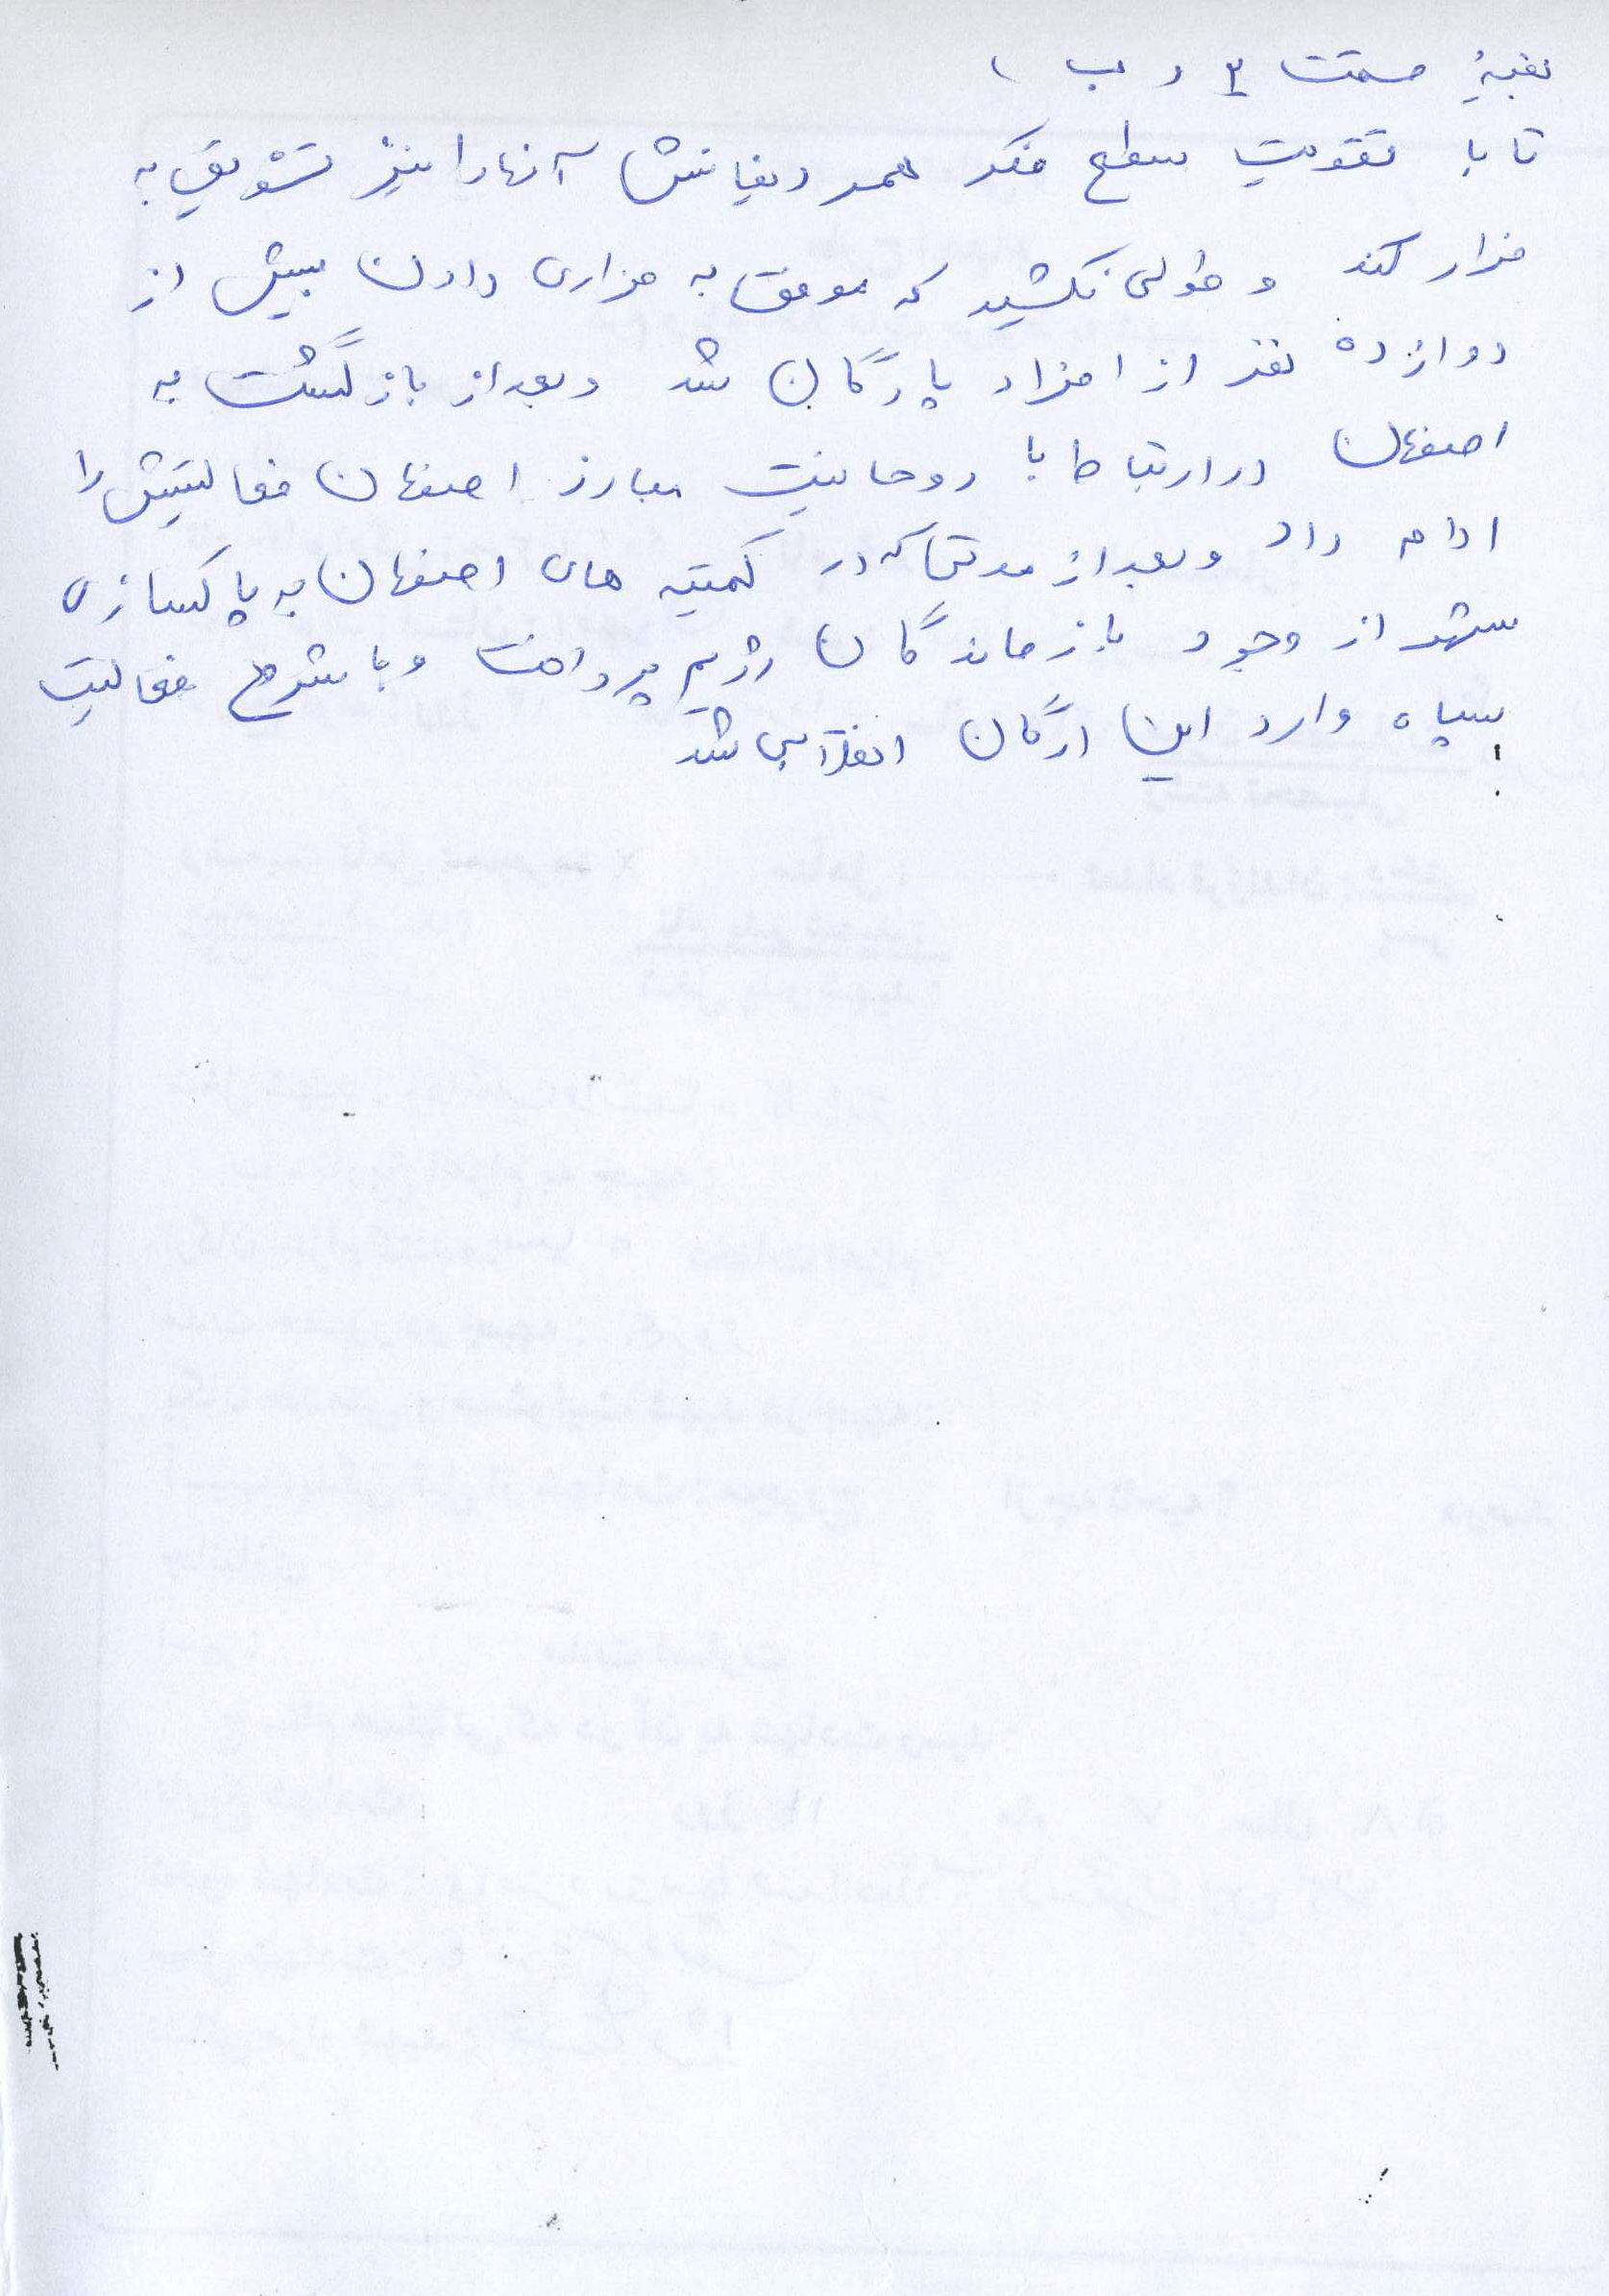 بقیهٔ قسمت ۳ و ب )
تا با تقویت سطح فکر همردیفانش آنها را نیز تشویق به
فرار کند و طولی نکشید که موفق به فراری دادن بیش از
دوازده نفر از افراد پادگان شد و بعد از بازگشت به
اصفهان در ارتباط با روحانیت مبارز اصفهان فعالیتش را
ادامه داد و بعد از مدتی که در کمیته های اصفهان به پاکسازی
شهر از وجود بازماندگان رژیم پرداخت و با شروع فعالیت
سپاه وارد این ارگان انقلابی شد